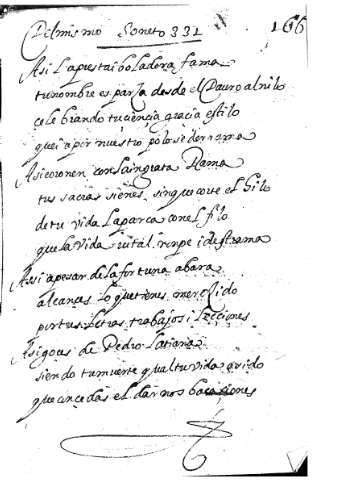 Del mismo Soneto 331 166
Asi la presta i boladora fama
tu nombre esparza desde el Dauro al nilo
celebrando tu ciençia gracia estilo
que ia por nuestro polo se derrama
Asi coronen con la ingrata Rama
tus sacras sienes sin que corte el hilo
de tu vida la parca con el filo
que la vida vital rompe i destrama
Assi apesar de la fortuna abara
alcances lo que tienes mereçido
por tus letras trabajos i lecciones
Asi goces de Pedro la tiara
siendo tu muerte qual tu vida a sido
que conçedas el darnos bacaciones